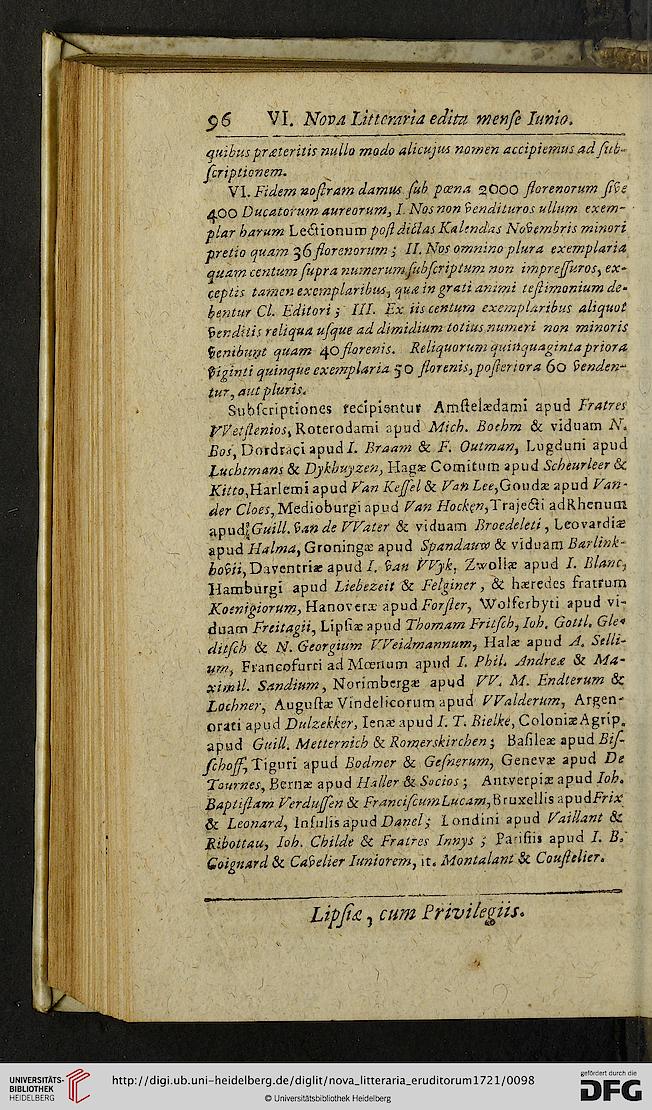 96 VI. Nova Litteraria edita mense Iunio.
quibus præteritis nullo modo alicujus nomen accipiemus ad sub-
scriptionem.
VI. Fidem nostram damus sub pœna 2000 florenorum sive
400 Ducatorum aureorum, I. Nos non vendituros ullum exem-
plar harum Lectionum post dictas Kalendas Novembris minori
pretio quam 36 florenorum; II. Nos omnino plura exemplaria
quam centum supra numerum subscriptum non impressuros, ex-
ceptis tamen exemplaribus, quæ in grati animi testimonium de-
bentur Cl. Editori; III. Ex iis centum exemplaribus aliquot
venditis reliqua usque ad dimidium totius numeri non minoris
venibunt quam 40 florenis. Reliquorum quinquaginta priora
viginti quinque exemplaria 50 florenis, posteriora 60 venden-
tur, aut pluris.
Subscriptiones recipientur Amstelædami apud Fratres
VVetstenios, Roterodami apud Mich. Boehm & viduam N.
Bos, Dordraci apud I. Braam & F. Outman, Lugduni apud
Luchtmans & Dykhuyzen, Hagæ Comitum apud Scheurleer &
Kitto, Harlemi apud Van Kessel & Van Lee, Goudæ apud Van-
der Cloes, Medioburgi apud Van Hocken, Trajecti ad Rhenum
apud Guill. van de VVater & viduam Broedeleti, Leovardiæ
apud Halma, Groningæ apud Spandauw & viduam Barlink-
hovii, Daventriæ apud I. van VVyk, Zwollæ apud I. Blanc,
Hamburgi apud Liebezeit & Felginer, & hæredes fratrum
Koenigiorum, Hanoveræ apud Forster, Wolferbyti apud vi-
duam Freitagii, Lipsiæ apud Thomam Fritsch, Ioh. Gottl. Gle-
ditsch & N. Georgium VVeidmannum, Halæ apud A. Selli-
um, Francofurti ad Mœnum apud I. Phil. Andreæ & Ma-
ximil. Sandium, Norimbergæ apud VV. M. Endterum &
Lochner, Augustæ Vindelicorum apud VValderum, Argen-
orati apud Dulzekker, Ienæ apud I. T. Bielke, Coloniæ Agrip.
apud Guill. Metternich & Romerskirchen; Basileæ apud Bis-
schoff, Tiguri apud Bodmer & Gesnerum, Genevæ apud De
Tournes, Bernæ apud Haller & Socios; Antverpiæ apud Ioh.
Baptistam Verdussen & Franciscum Lucam, Bruxellis apud Frix
& Leonard, Insulis apud Danel; Londini apud Vaillant &
Ribottau, Ioh. Childe & Fratres Innys; Parisiis apud I. B.
Coignard & Cavelier Iuniorem, it. Montalant & Coustelier.
Lipsiæ, cum Privilegiis.
UNIVERSITÄTS-
BIBLIOTHEK
HEIDELBERG
http://digi.ub.uni-heidelberg.de/diglit/nova_litteraria_eruditorum1721/0098
© Universitätsbibliothek Heidelberg
gefördert durch die
DFG